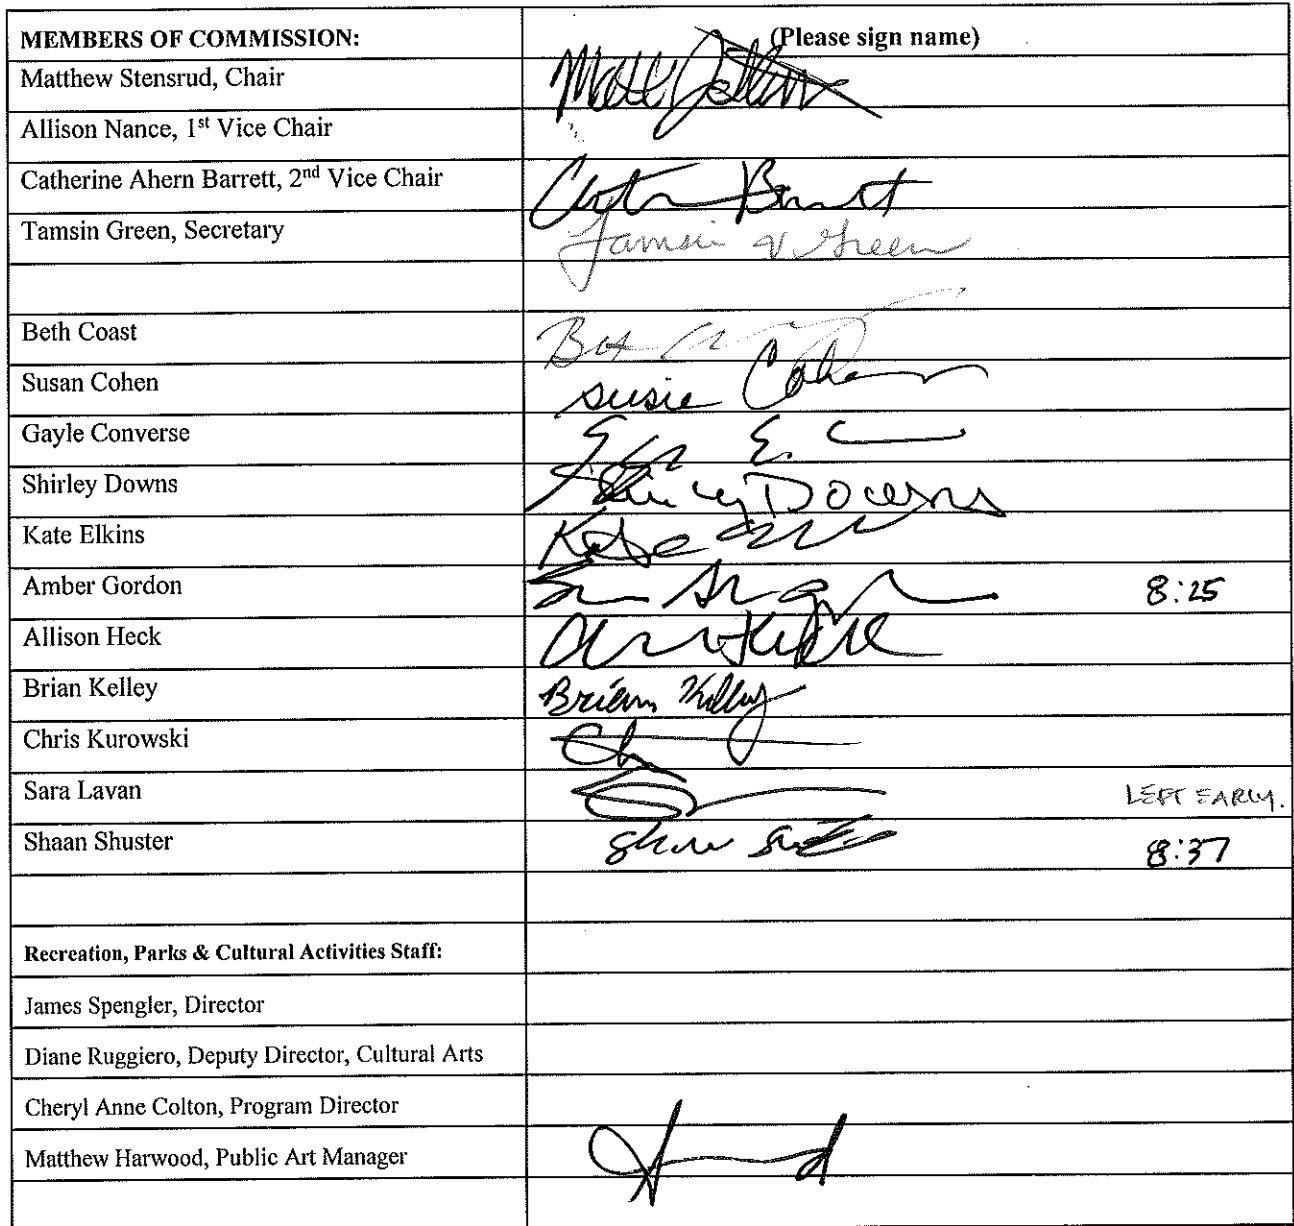 MEMBERS OF COMMISSION: (Please sign name)
Matthew Stensrud, Chair Matt
Allison Nance, 1st Vice Chair
Catherine Ahern Barrett, 2nd Vice Chair
Tamsin Green, Secretary Tamsin Green
Beth Coast
Susan Cohen Susie Cohen
Gayle Converse
Shirley Downs Shirley Downs
Kate Elkins Kate
Amber Gordon 8:25
Allison Heck
Brian Kelley Brian Kelley
Chris Kurowski
Sara Lavan LEFT EARLY.
Shaan Shuster 8:37
Recreation, Parks & Cultural Activities Staff:
James Spengler, Director
Diane Ruggiero, Deputy Director, Cultural Arts
Cheryl Anne Colton, Program Director
Matthew Harwood, Public Art Manager